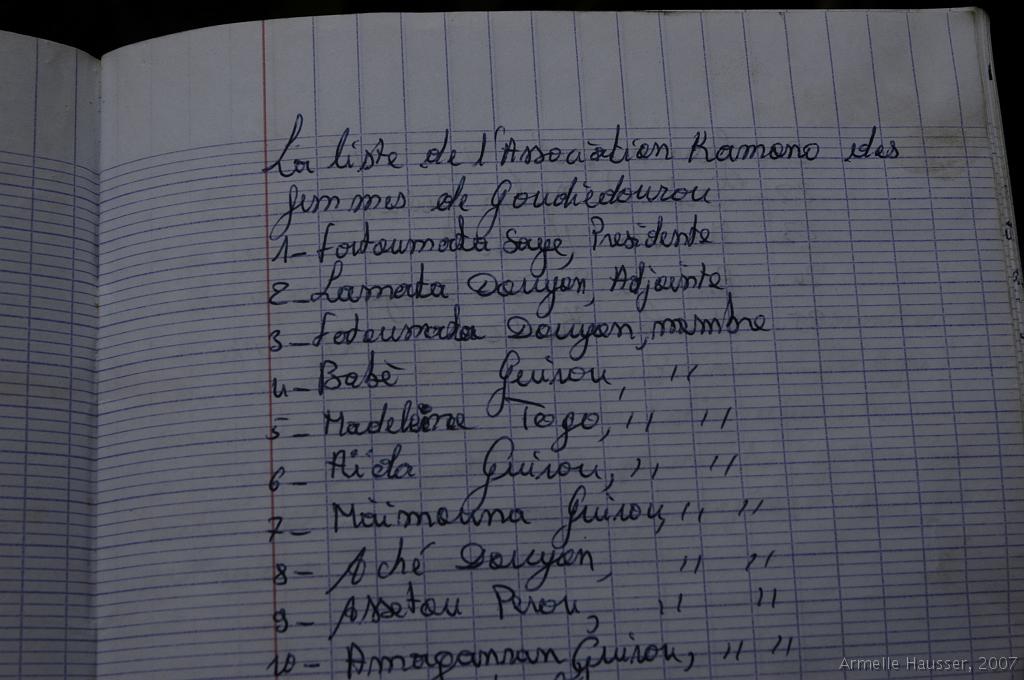 La liste de l'Association Kamono des
femmes de Goudièdourou
1- Fatoumata Saye, Presidente
2- Lamata Douyon, Adjointe
3- Fatoumata Douyon, membre
4- Babè Guirou, "
5- Madeleine Togo, " "
6- Aïda Guirou, " "
7- Maimouna Guirou, " "
8- Aché Douyon, " "
9- Assetou Perou, " "
10- Amaganran Guirou, " "
Armelle Hausser, 2007